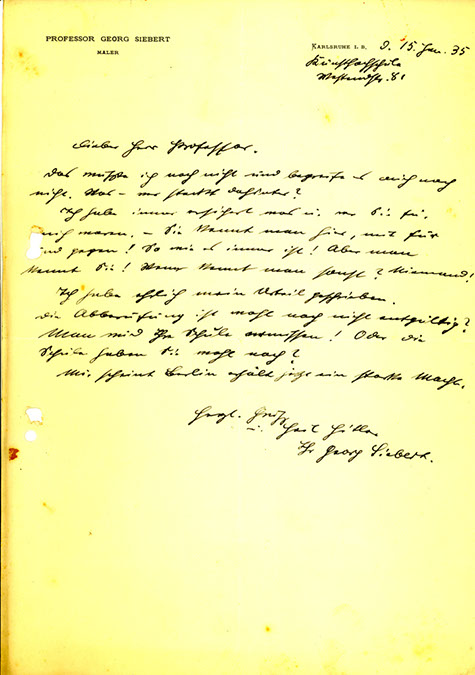 PROFESSOR GEORG SIEBERT
MALER
KARLSRUHE I. B. D. 15. Jan. 35
Kunsthochschule
Westendstr. 81
Lieber Herr Professor.
Das wußte ich noch nicht und begreife es auch noch
nicht. Was – wer steckt dahinter?
Ich habe immer versichert was u. wer Sie für
mich waren. – Sie kennt man hier, mit für
und gegen! So wie es immer ist! Aber man
kennt Sie! Wenn kennt man sonst? Niemand!
Ich habe ehrlich mein Urteil geschrieben.
Die Abberufung ist wohl noch nicht entgültig?
Man wird Ihre Schule vermissen! Oder die
Schule haben Sie wohl noch?
Mir scheint Berlin erhält jetzt ein starke Macht.
Herzl. Gruß
u. Heil Hitler
Ihr Georg Siebert.